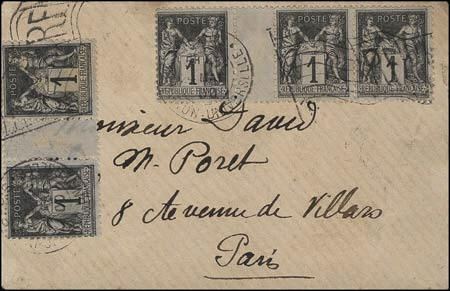 POSTE
1
RÉPUBLIQUE FRANÇAISE
POSTE
1
RÉPUBLIQUE FRANÇAISE
POSTE
1
RÉPUBLIQUE FRANÇAISE
POSTES
1
RÉPUBLIQUE FRANÇAISE
1
RÉPUBLIQUE FRANÇAISE
Monsieur David
M. Poret
8 Avenue de Villars
Paris